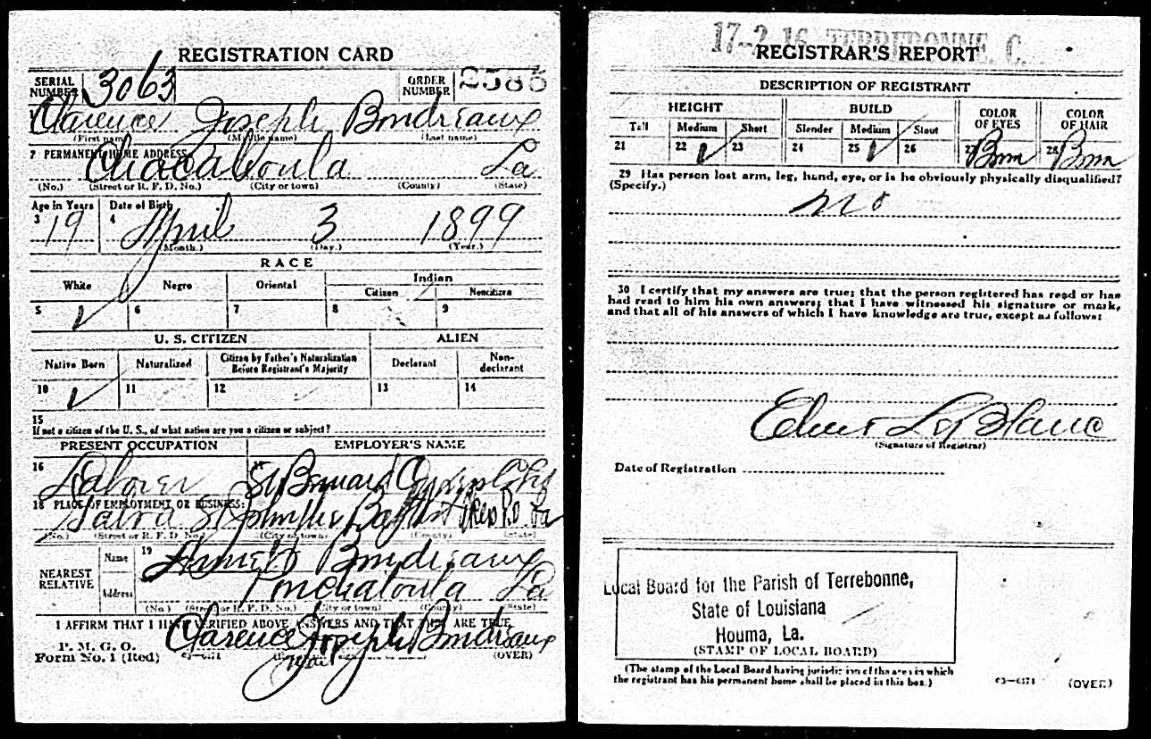 REGISTRATION CARD
SERIAL NUMBER 3063 ORDER NUMBER 2585
Clarence Joseph Boudreaux
(First name) (Middle name) (Last name)
2 PERMANENT HOME ADDRESS
Chacahoula La
(No.) (Street or R. F. D. No.) (City or town) (County) (State)
Age in Years Date of Birth
3 19 4 April 3 1899
(Month.) (Day.) (Year.)
RACE
White Negro Oriental Indian
Citizen Noncitizen
5 6 7 8 9
U. S. CITIZEN ALIEN
Native Born Naturalized Citizen by Father's Naturalization Before Registrant's Majority Declarant Non-declarant
10 11 12 13 14
15
If not a citizen of the U. S., of what nation are you a citizen or subject?
PRESENT OCCUPATION EMPLOYER'S NAME
16 Laborer St Bernard Cypress
18 PLACE OF EMPLOYMENT OR BUSINESS:
St John the Baptist La
(No.) (Street or R. F. D. No.) (City or town) (County) (State)
NEAREST RELATIVE Name 19 Boudreaux
Address Ponchatoula La
(No.) (Street or R. F. D. No.) (City or town) (County) (State)
I AFFIRM THAT I HAVE VERIFIED ABOVE ANSWERS AND THAT THEY ARE TRUE
P. M. G. O.
Form No. 1 (Red) Clarence Joseph Boudreaux
(OVER)
17-2-16 TERREBONNE, C.
REGISTRAR'S REPORT
DESCRIPTION OF REGISTRANT
HEIGHT BUILD COLOR OF EYES COLOR OF HAIR
Tall Medium Short Slender Medium Stout
21 22 23 24 25 26 27 Brn 28 Brn
29 Has person lost arm, leg, hand, eye, or is he obviously physically disqualified?
(Specify.)
no
30 I certify that my answers are true; that the person registered has read or has
had read to him his own answers; that I have witnessed his signature or mark,
and that all of his answers of which I have knowledge are true, except as follows:
LeBlanc
(Signature of Registrar)
Date of Registration
Local Board for the Parish of Terrebonne,
State of Louisiana
Houma, La.
(STAMP OF LOCAL BOARD)
(The stamp of the Local Board having jurisdiction of the area in which
the registrant has his permanent home shall be placed in this box.)
03—6171 (OVER)